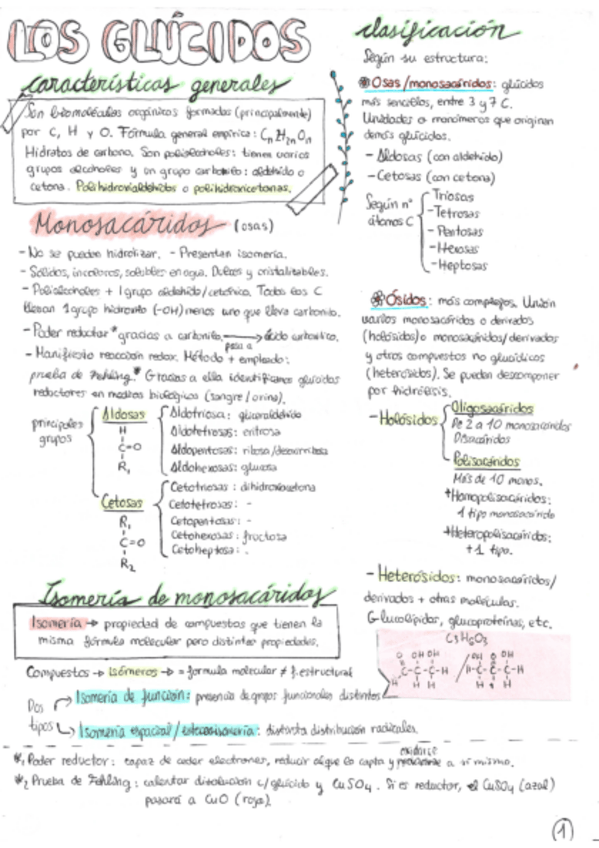 LOS GLÚCIDOS
características generales
Son biomoléculas orgánicas formadas (principalmente)
por C, H y O. Fórmula general empírica: CnH2nOn
Hidratos de carbono. Son polialcoholes: tienen varios
grupos alcoholes y un grupo carbonilo: aldehído o
cetona. Polihidroxialdehídos o polihidroxicetonas.
Monosacáridos (osas)
- No se pueden hidrolizar. - Presentan isomería.
- Sólidos, incoloros, solubles en agua. Dulces y cristalizables.
- Polialcoholes + 1 grupo aldehído/cetónico. Todos los C
llevan 1 grupo hidroxilo (-OH) menos uno que lleva carbonilo.
- Poder reductor* gracias a carbonilo pasa a ácido carboxílico.
- Manifiesto reacción redox. Método + empleado:
prueba de Fehling.* Gracias a ella identificamos glúcidos
reductores en medios biológicos (sangre/orina).
principales
grupos
Aldosas
H
C=O
R1
Aldotriosa: gliceraldehído
Aldotetrosas: eritrosa
Aldopentosas: ribosa/desoxirribosa
Aldohexosas: glucosa
Cetosas
R1
C=O
R2
Cetotriosas: dihidroxiacetona
Cetotetrosas: -
Cetopentosas: -
Cetohexosas: fructosa
Cetoheptosa: .
Isomería de monosacáridos
Isomería → propiedad de compuestos que tienen la
misma fórmula molecular pero distintas propiedades.
Compuestos → Isómeros → = formula molecular ≠ f. estructural
Dos
tipos
Isomería de función: presencia de grupos funcionales distintos
Isomería espacial/estereoisomería: distinta distribución radicales.
clasificación
Según su estructura:
Osas/monosacáridos: glúcidos
más sencillos, entre 3 y 7 C.
Unidades o monómeros que originan
demás glúcidos.
- Aldosas (con aldehído)
- Cetosas (con cetona)
Según nº
átomos C
Triosas
- Tetrosas
- Pentosas
- Hexosas
- Heptosas
Ósidos: más complejos. Unión
varios monosacáridos o derivados
(holósidos) o monosacáridos/derivados
y otros compuestos no glucídicos
(heterósidos). Se pueden descomponer
por hidrólisis.
- Holósidos
Oligosacáridos
De 2 a 10 monosacáridos
Disacáridos
Polisacáridos
Más de 10 monos.
+Homopolisacáridos:
1 tipo monosacárido
+Heteropolisacáridos:
+1 tipo.
- Heterósidos: monosacáridos/
derivados + otras moléculas.
Glucolípidos, glucoproteínas, etc.
C3H6O3
O OH OH
C-C-C-H
H-C-C-C-H
*1 Poder reductor: capaz de ceder electrones, reducir al que la capta y oxidarse a sí mismo.
*2 Prueba de Fehling: calentar disolución c/glúcido y CuSO4. Si es reductor, el CuSO4 (azul)
pasará a CuO (rojo).
1